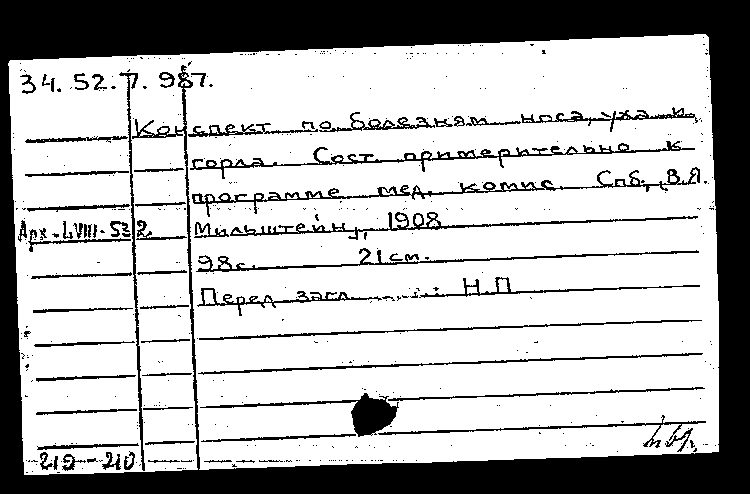 34. 52. 7. 987.
Конспект по болезням носа, уха и
горла. Сост. примерительно к
программе мед. комис. Спб., В.Я.
Арх.-LVIII-532. Мильштейн, 1908
98с. 21см.
Перед загл. Н.П.
210-210